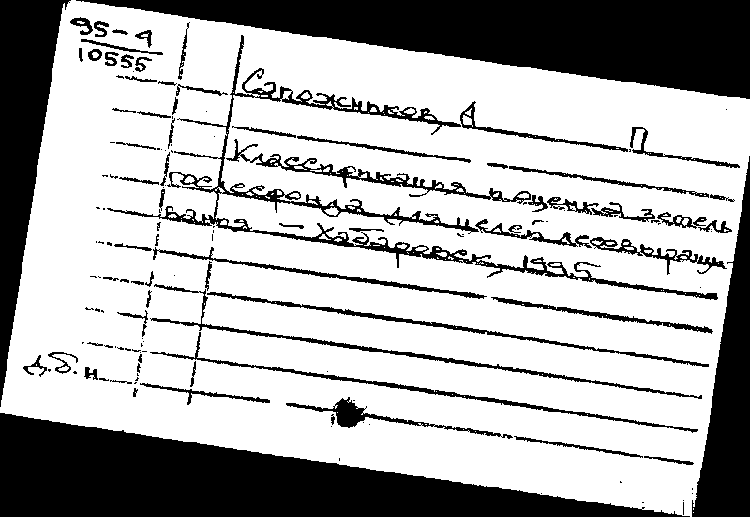 95-4
10555
Сапожников, А П
Классификация и оценка земель
гослесфонда для целей лесовыращи-
вания — Хабаровск, 1995
д.б.н